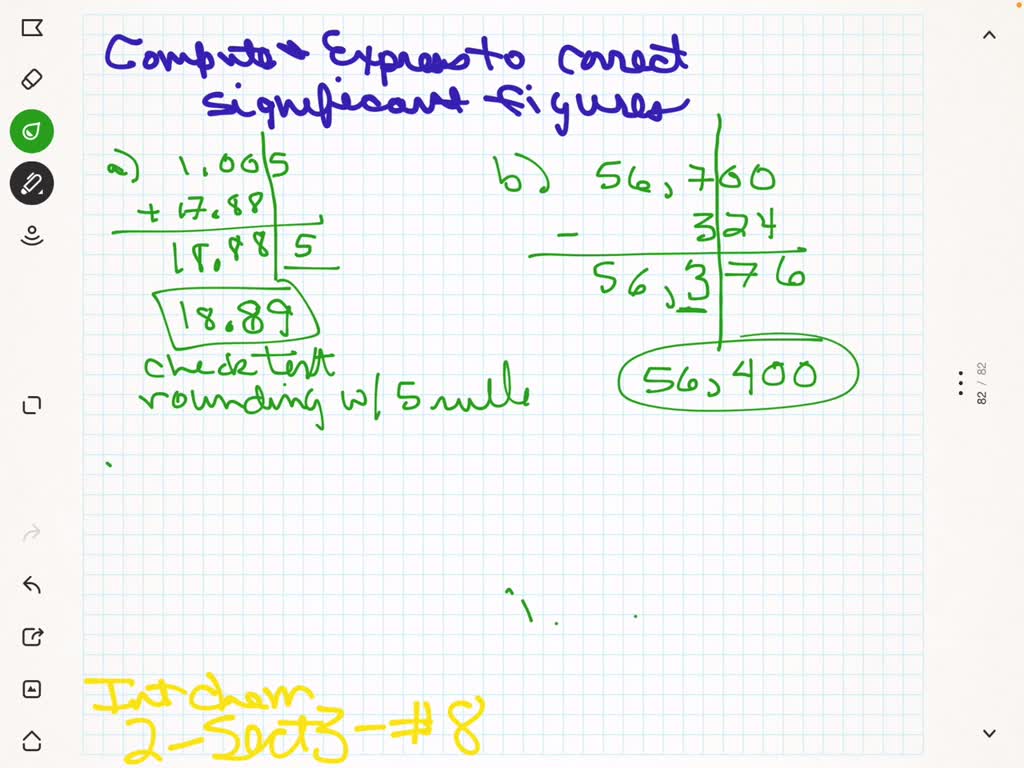 Compute & Express to correct
significant figures
a) 1.005
+ 17.88
18.885
18.89
check text
rounding w/ 5 rule
b) 56,700
- 324
56,376
56,400
82 / 82
Int chem
2-Sect3-#8